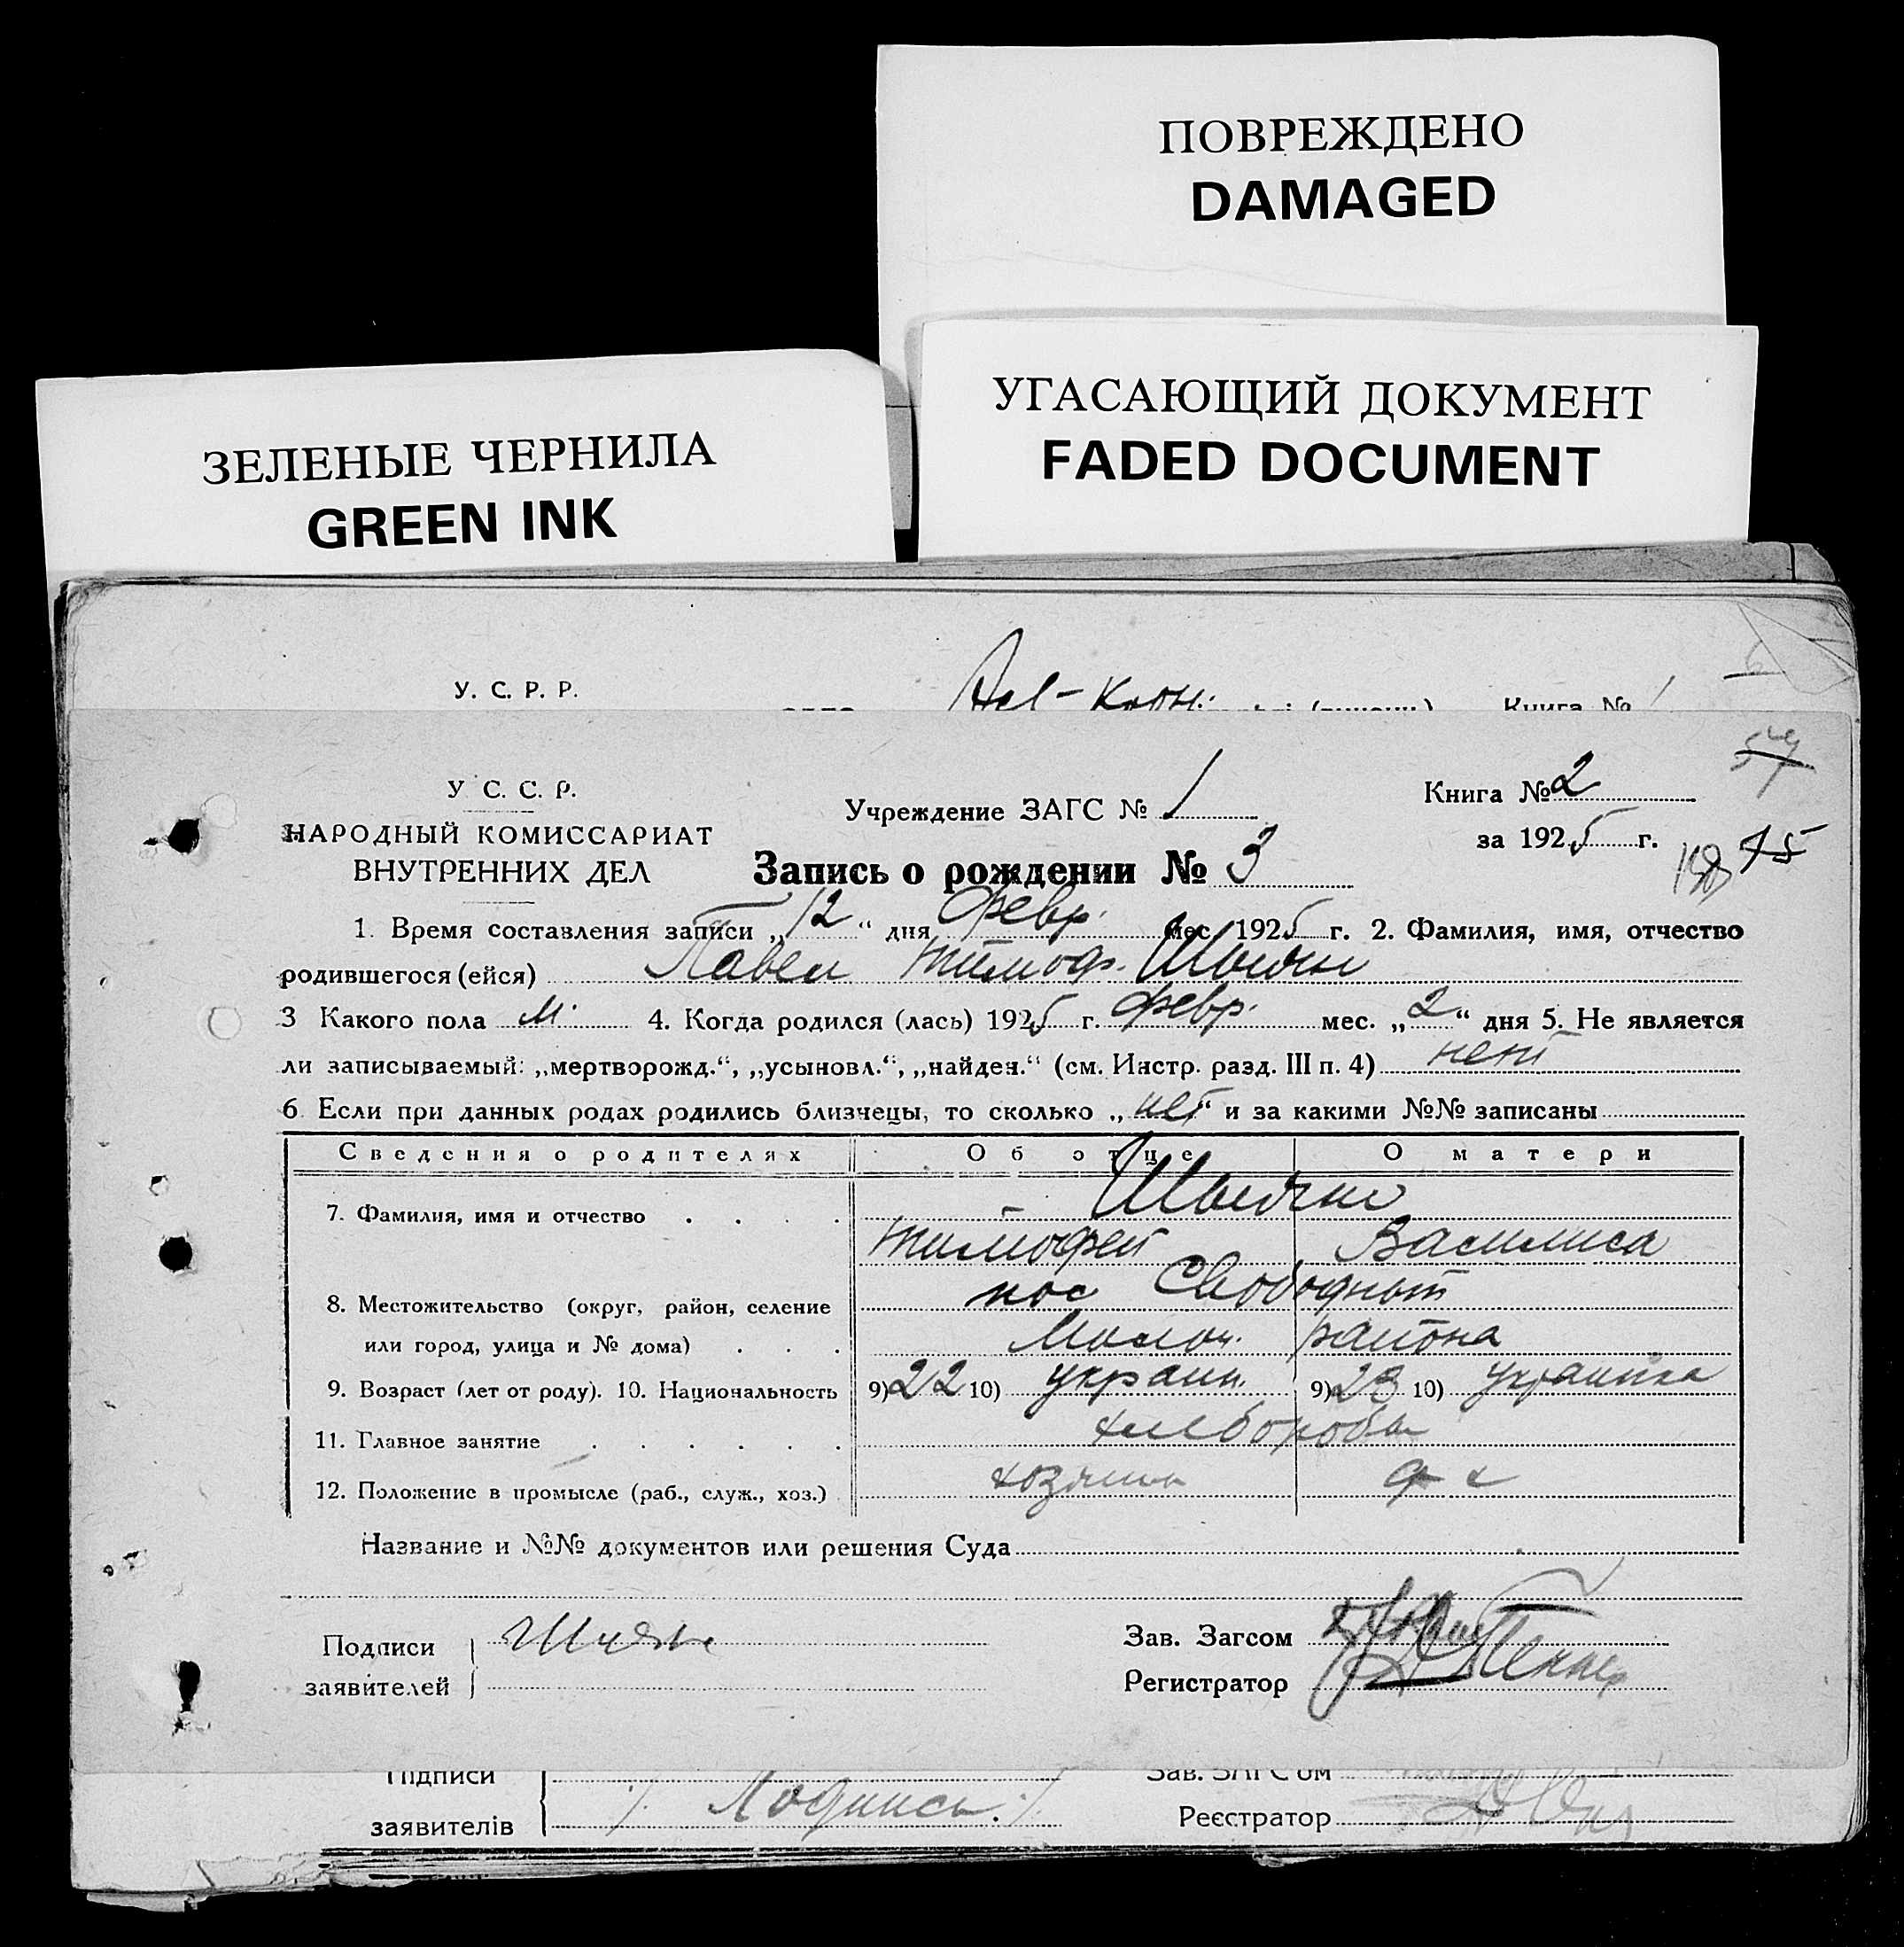 ПОВРЕЖДЕНО
DAMAGED
УГАСАЮЩИЙ ДОКУМЕНТ
FADED DOCUMENT
ЗЕЛЕНЫЕ ЧЕРНИЛА
GREEN INK
У. С. Р. Р.
Книга №
У С. С. Р.
НАРОДНЫЙ КОМИССАРИАТ
ВНУТРЕННИХ ДЕЛ
Учреждение ЗАГС № 1
Книга № 2
за 1925 г.
Запись о рождении № 3
1. Время составления записи „12“ дня февр. мес. 1925 г. 2. Фамилия, имя, отчество
родившегося (ейся) Павел Тимоф.
3 Какого пола м. 4. Когда родился (лась) 1925 г. февр. мес. „2“ дня 5. Не является
ли записываемый: „мертворожд.“, „усыновл.“, „найден.“ (см. Инстр. разд. III п. 4) нет
6 Если при данных родах родились близнецы, то сколько „нет“ и за какими №№ записаны
Сведения о родителях Об отце О матери
7. Фамилия, имя и отчество
Тимофей Василиса
8. Местожительство (округ, район, селение пос Свободный
или город, улица и № дома) Молоч. района
9. Возраст (лет от роду). 10. Национальность 9) 22 10) украин. 9) 23 10) украинка
11. Главное занятие хлеборобы
12. Положение в промысле (раб., служ., хоз.) хозяин
Название и №№ документов или решения Суда
Подписи
заявителей
Зав. Загсом
Регистратор
Підписи
заявителів
/. Подпись. /.
Зав. ЗАГС'ом
Реєстратор